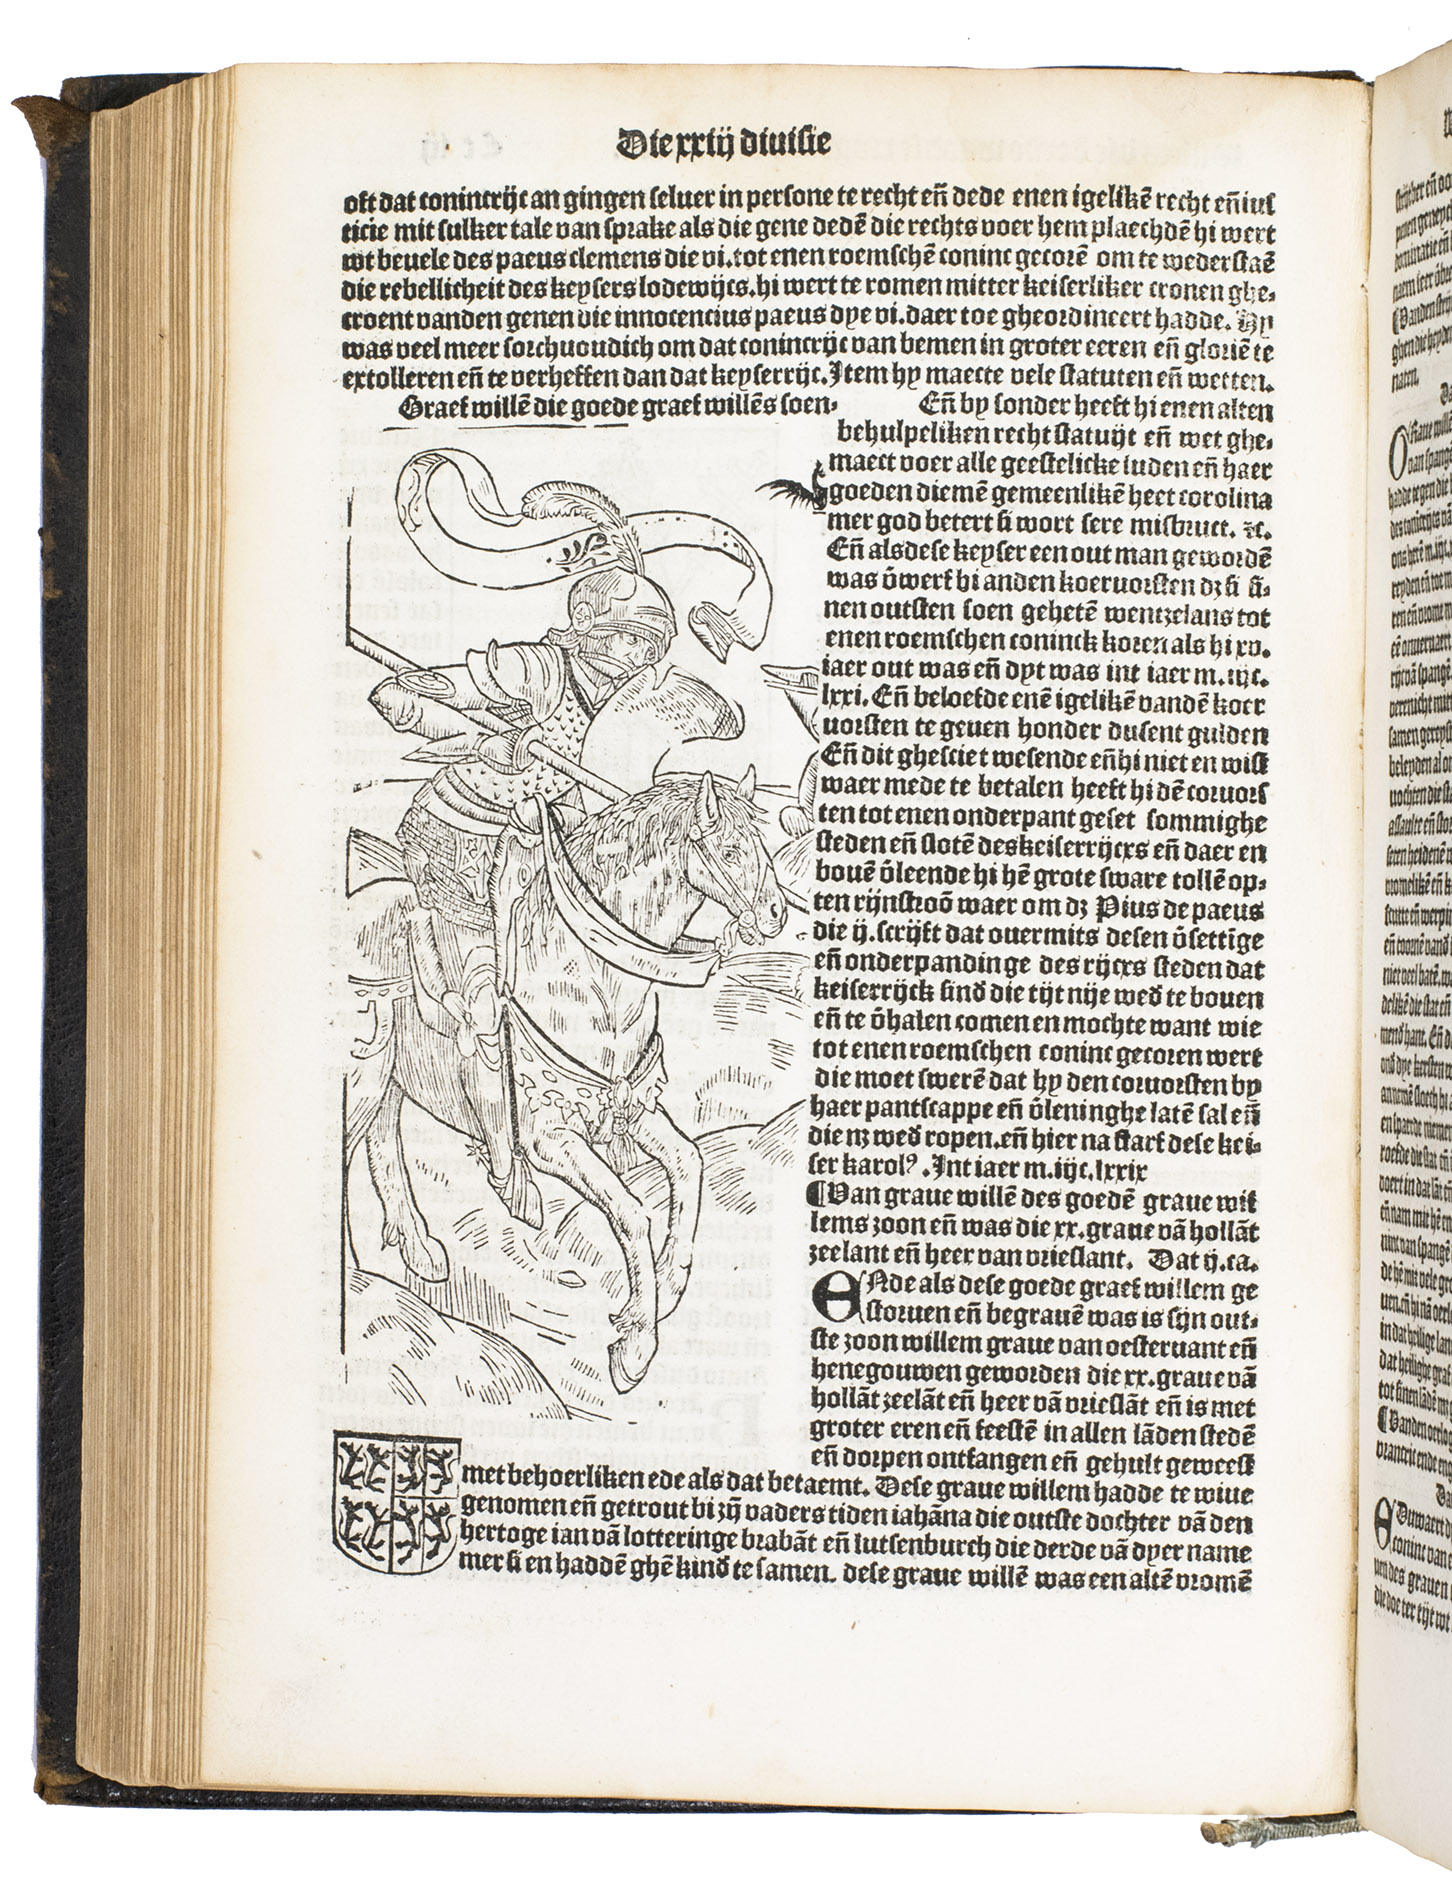 Die xxiij diuisie
oft dat conincrijc an gingen seluer in persone te recht en̄ dede enen igelikē recht en̄ ius
ticie mit sulker tale van sprake als die gene dedē die rechts voer hem plaechdē hi wert
wt beuele des paeus clemens die vi. tot enen roemschē coninc gecorē om te wederstaē
die rebellicheit des keysers lodewijcs. hi wert te romen mitter keiserliker cronen ghe⸗
croent vanden genen die innocencius paeus dye vi. daer toe gheordineert hadde. Hy
was veel meer sorchuoudich om dat conincrijc van bemen in groter eeren en̄ gloriē te
extolleren en̄ te verheffen dan dat keyserrijc. Item hy maecte vele statuten en̄ wetten.
Graef willē die goede graef willēs soen⸗
En̄ by sonder heeft hi enen alten
behulpeliken recht statuijt en̄ wet ghe⸗
maect voer alle geestelicke luden en̄ haer
goeden diemē gemeenlikē heet corolina
mer god betert si wort sere misbruct. ⁊c.
En̄ als dese keyser een out man gewordē
was v̄werf hi anden koeruorsten dꝫ si si⸗
nen outsten soen gehetē wentzelaus tot
enen roemschen coninck koren als hi xv.
iaer out was en̄ dyt was int iaer m.iijc.
lxxi. En̄ beloefde enē igelikē vandē koer
uorsten te geuen honder dusent gulden
En̄ dit ghesciet wesende en̄ hi niet en wist
waer mede te betalen heeft hi dē coruors
ten tot enen onderpant geset sommighe
steden en̄ slotē des keiserrijcxs en̄ daer en
bouē v̄leende hi hē grote sware tollē op⸗
ten rijnstroō waer om dꝫ Pius de paeus
die ij. scrijft dat ouermits desen v̄settīge
en̄ onderpandinge des rijcxs steden dat
keiserrijck sind̄ die tijt nije wed̄ te bouen
en̄ te v̄halen comen en mochte want wie
tot enen roemschen coninc gecoren wert
die moet swerē dat hy den coruorsten by
haer pantscappe en̄ v̄leninghe latē sal en̄
die nꝫ wed̄ ropen. en̄ hier na starf dese kei⸗
ser karolꝰ. Int iaer m.iijc.lxxix
¶Van graue willē des goedē graue wil
lems zoon en̄ was die xx. graue vā hollāt
zeelant en̄ heer van vrieslant. Dat ij. ca.
ENde als dese goede graef willem ge
storuen en̄ begrauē was is sijn out⸗
ste zoon willem graue van oesteruant en̄
henegouwen geworden die xx. graue vā
hollāt zeelāt en̄ heer vā vrieslāt en̄ is met
groter eren en̄ feestē in allen lāden stedē
en̄ dorpen ontfangen en̄ gehult geweest
met behoerliken ede als dat betaemt. Dese graue willem hadde te wiue
genomen en̄ getrout bi zijn vaders tiden iahāna die outste dochter vā den
hertoge ian vā lotteringe brabāt en̄ lutsenburch die derde vā dyer name
mer si en haddē ghē kind̄ te samen. dese graue willē was een altē vromē